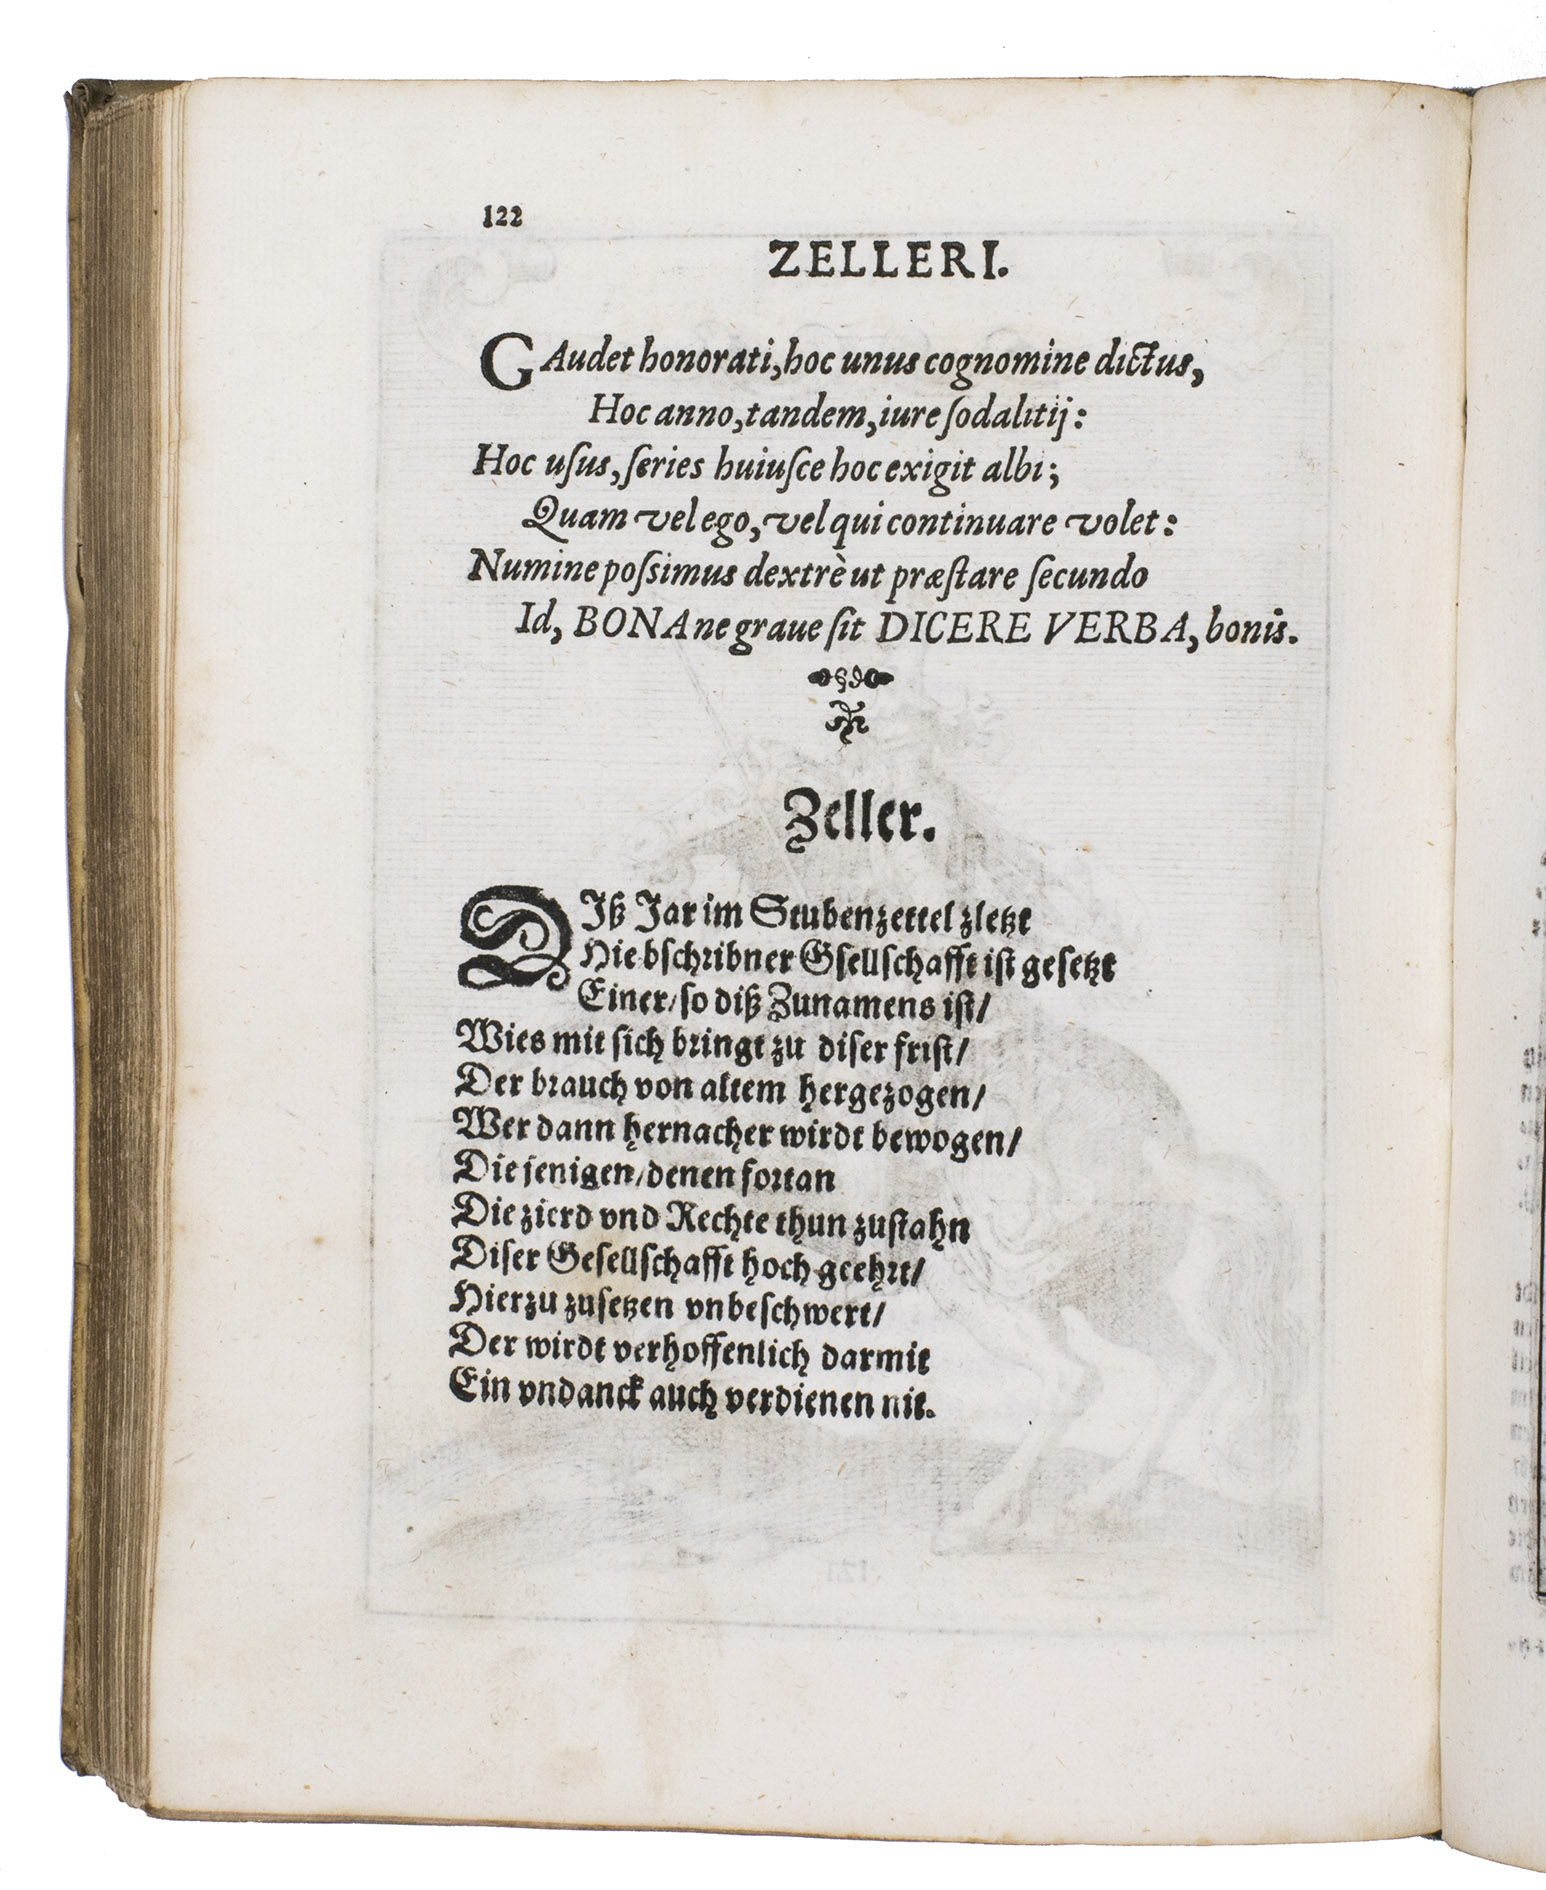 122
ZELLERI.
GAudet honorati, hoc unus cognomine dictus,
Hoc anno, tandem, iure ſodalitij:
Hoc uſus, ſeries huiuſce hoc exigit albi;
Quam vel ego, vel qui continuare volet:
Numine poſsimus dextrè ut præſtare ſecundo
Id, BONA ne graue ſit DICERE VERBA, bonis.
Zeller.
DIß Jar im Stubenzettel zletzt
Hie bſchribner Gſellſchafft iſt geſetzt
Einer/ ſo diß Zunamens iſt/
Wies mit ſich bringt zu diſer friſt/
Der brauch von altem hergezogen/
Wer dann hernacher wirdt bewogen/
Die jenigen/ denen fortan
Die zierd vnd Rechte thun zuſtahn
Diſer Geſellſchafft hoch geehrt/
Hierzu zuſetzen vnbeſchwert/
Der wirdt verhoffenlich darmit
Ein vndanck auch verdienen nit.